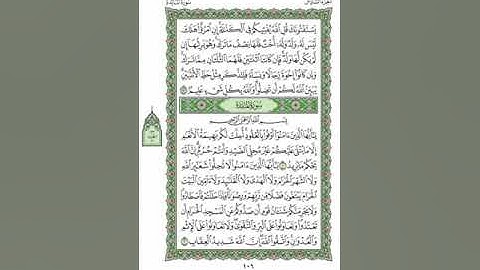 سورة المائدة
الجزء السادس
يَسْتَفْتُونَكَ قُلِ ٱللَّهُ يُفْتِيكُمْ فِي ٱلْكَلَٰلَةِ إِنِ ٱمْرُؤٌا۟ هَلَكَ
لَيْسَ لَهُۥ وَلَدٌ وَلَهُۥٓ أُخْتٌ فَلَهَا نِصْفُ مَا تَرَكَ وَهُوَ يَرِثُهَآ إِن
لَّمْ يَكُن لَّهَا وَلَدٌ فَإِن كَانَتَا ٱثْنَتَيْنِ فَلَهُمَا ٱلثُّلُثَانِ مِمَّا تَرَكَ
وَإِن كَانُوٓا۟ إِخْوَةً رِّجَالًا وَنِسَآءً فَلِلذَّكَرِ مِثْلُ حَظِّ ٱلْأُنثَيَيْنِ
يُبَيِّنُ ٱللَّهُ لَكُمْ أَن تَضِلُّوا۟ وَٱللَّهُ بِكُلِّ شَيْءٍ عَلِيمٌ
سُورَةُ المَائِدَةِ
بِسْمِ ٱللَّهِ ٱلرَّحْمَٰنِ ٱلرَّحِيمِ
يَٰٓأَيُّهَا ٱلَّذِينَ ءَامَنُوٓا۟ أَوْفُوا۟ بِٱلْعُقُودِ أُحِلَّتْ لَكُم بَهِيمَةُ ٱلْأَنْعَٰمِ
إِلَّا مَا يُتْلَىٰ عَلَيْكُمْ غَيْرَ مُحِلِّي ٱلصَّيْدِ وَأَنتُمْ حُرُمٌ إِنَّ ٱللَّهَ
يَحْكُمُ مَا يُرِيدُ يَٰٓأَيُّهَا ٱلَّذِينَ ءَامَنُوا۟ لَا تُحِلُّوا۟ شَعَٰٓئِرَ ٱللَّهِ
وَلَا ٱلشَّهْرَ ٱلْحَرَامَ وَلَا ٱلْهَدْيَ وَلَا ٱلْقَلَٰٓئِدَ وَلَآ ءَآمِّينَ ٱلْبَيْتَ
ٱلْحَرَامَ يَبْتَغُونَ فَضْلًا مِّن رَّبِّهِمْ وَرِضْوَٰنًا وَإِذَا حَلَلْتُمْ فَٱصْطَادُوا۟
وَلَا يَجْرِمَنَّكُمْ شَنَـَٔانُ قَوْمٍ أَن صَدُّوكُمْ عَنِ ٱلْمَسْجِدِ ٱلْحَرَامِ أَن
تَعْتَدُوا۟ وَتَعَاوَنُوا۟ عَلَى ٱلْبِرِّ وَٱلتَّقْوَىٰ وَلَا تَعَاوَنُوا۟ عَلَى ٱلْإِثْمِ
وَٱلْعُدْوَٰنِ وَٱتَّقُوا۟ ٱللَّهَ إِنَّ ٱللَّهَ شَدِيدُ ٱلْعِقَابِ
١٠٦